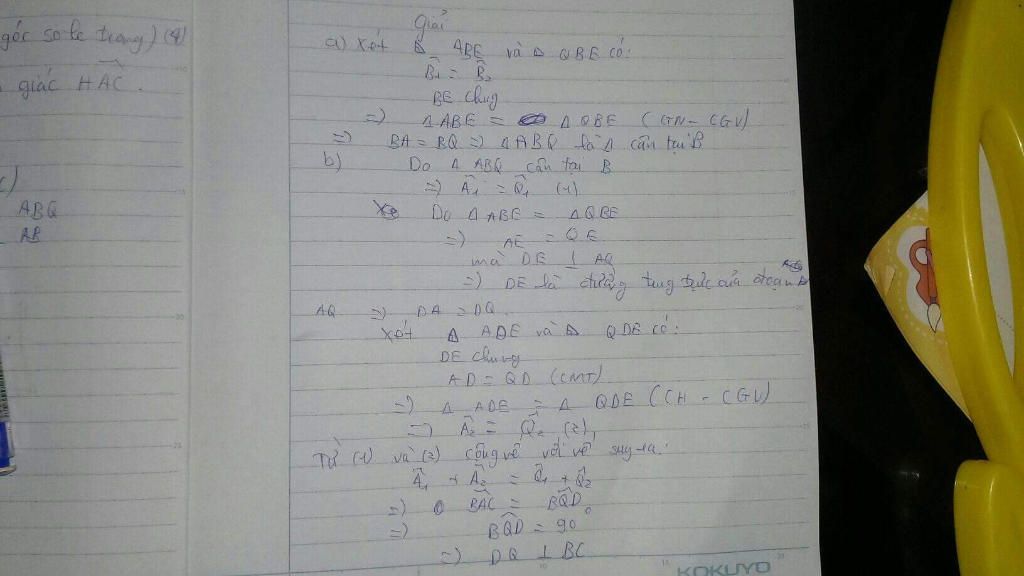 góc so le trong) (4)
giác HAC.
c)
ABQ
AB
Giải
a) Xét Δ ABE và Δ QBE có:
B̂₁ = B̂₂
BE chung
=> Δ ABE = Δ QBE (GN - CGV)
=> BA = BQ => Δ ABQ là Δ cân tại B
b) Do Δ ABQ cân tại B
=> Â₁ = Q̂₁ (1)
Do Δ ABE = Δ QBE
=> AE = QE
mà DE ⊥ AQ
=> DE là đường trung trực của đoạn
AQ => DA = DQ.
Xét Δ ADE và Δ QDE có:
DE chung
AD = QD (CMT)
=> Δ ADE = Δ QDE (CH - CGV)
=> Â₂ = Q̂₂ (2)
Từ (1) và (2) cộng vế với vế suy ra:
Â₁ + Â₂ = Q̂₁ + Q̂₂
=> BÂC = BQ̂D
=> BQ̂D = 90°
=> DQ ⊥ BC
KOKUYO